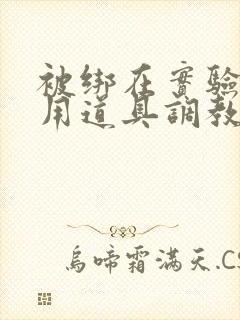 被绑在實驗
用道具調教
烏啼霜滿天.CS